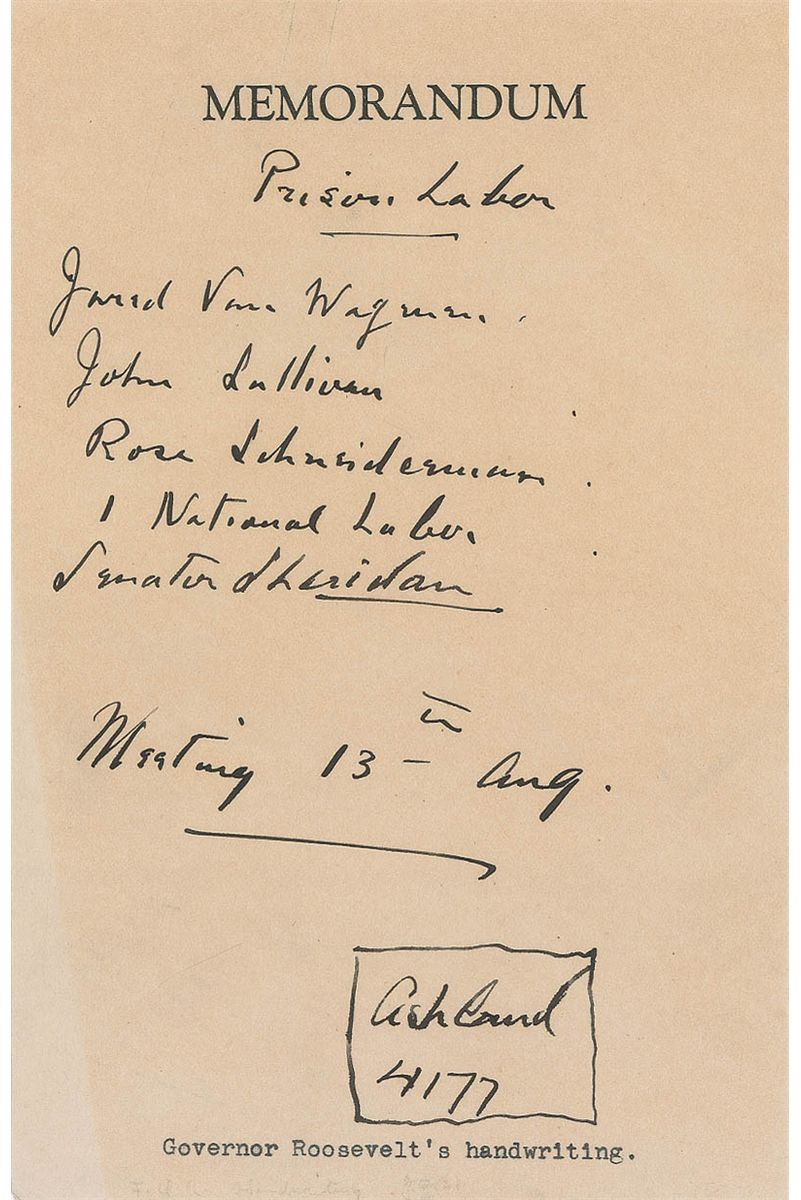 MEMORANDUM
Prison Labor
Jared Van Wagenen.
John Sullivan
Rose Schneiderman.
1 National Labor
Senator Sheridan
Meeting 13th Aug.
Ashland
4177
Governor Roosevelt's handwriting.